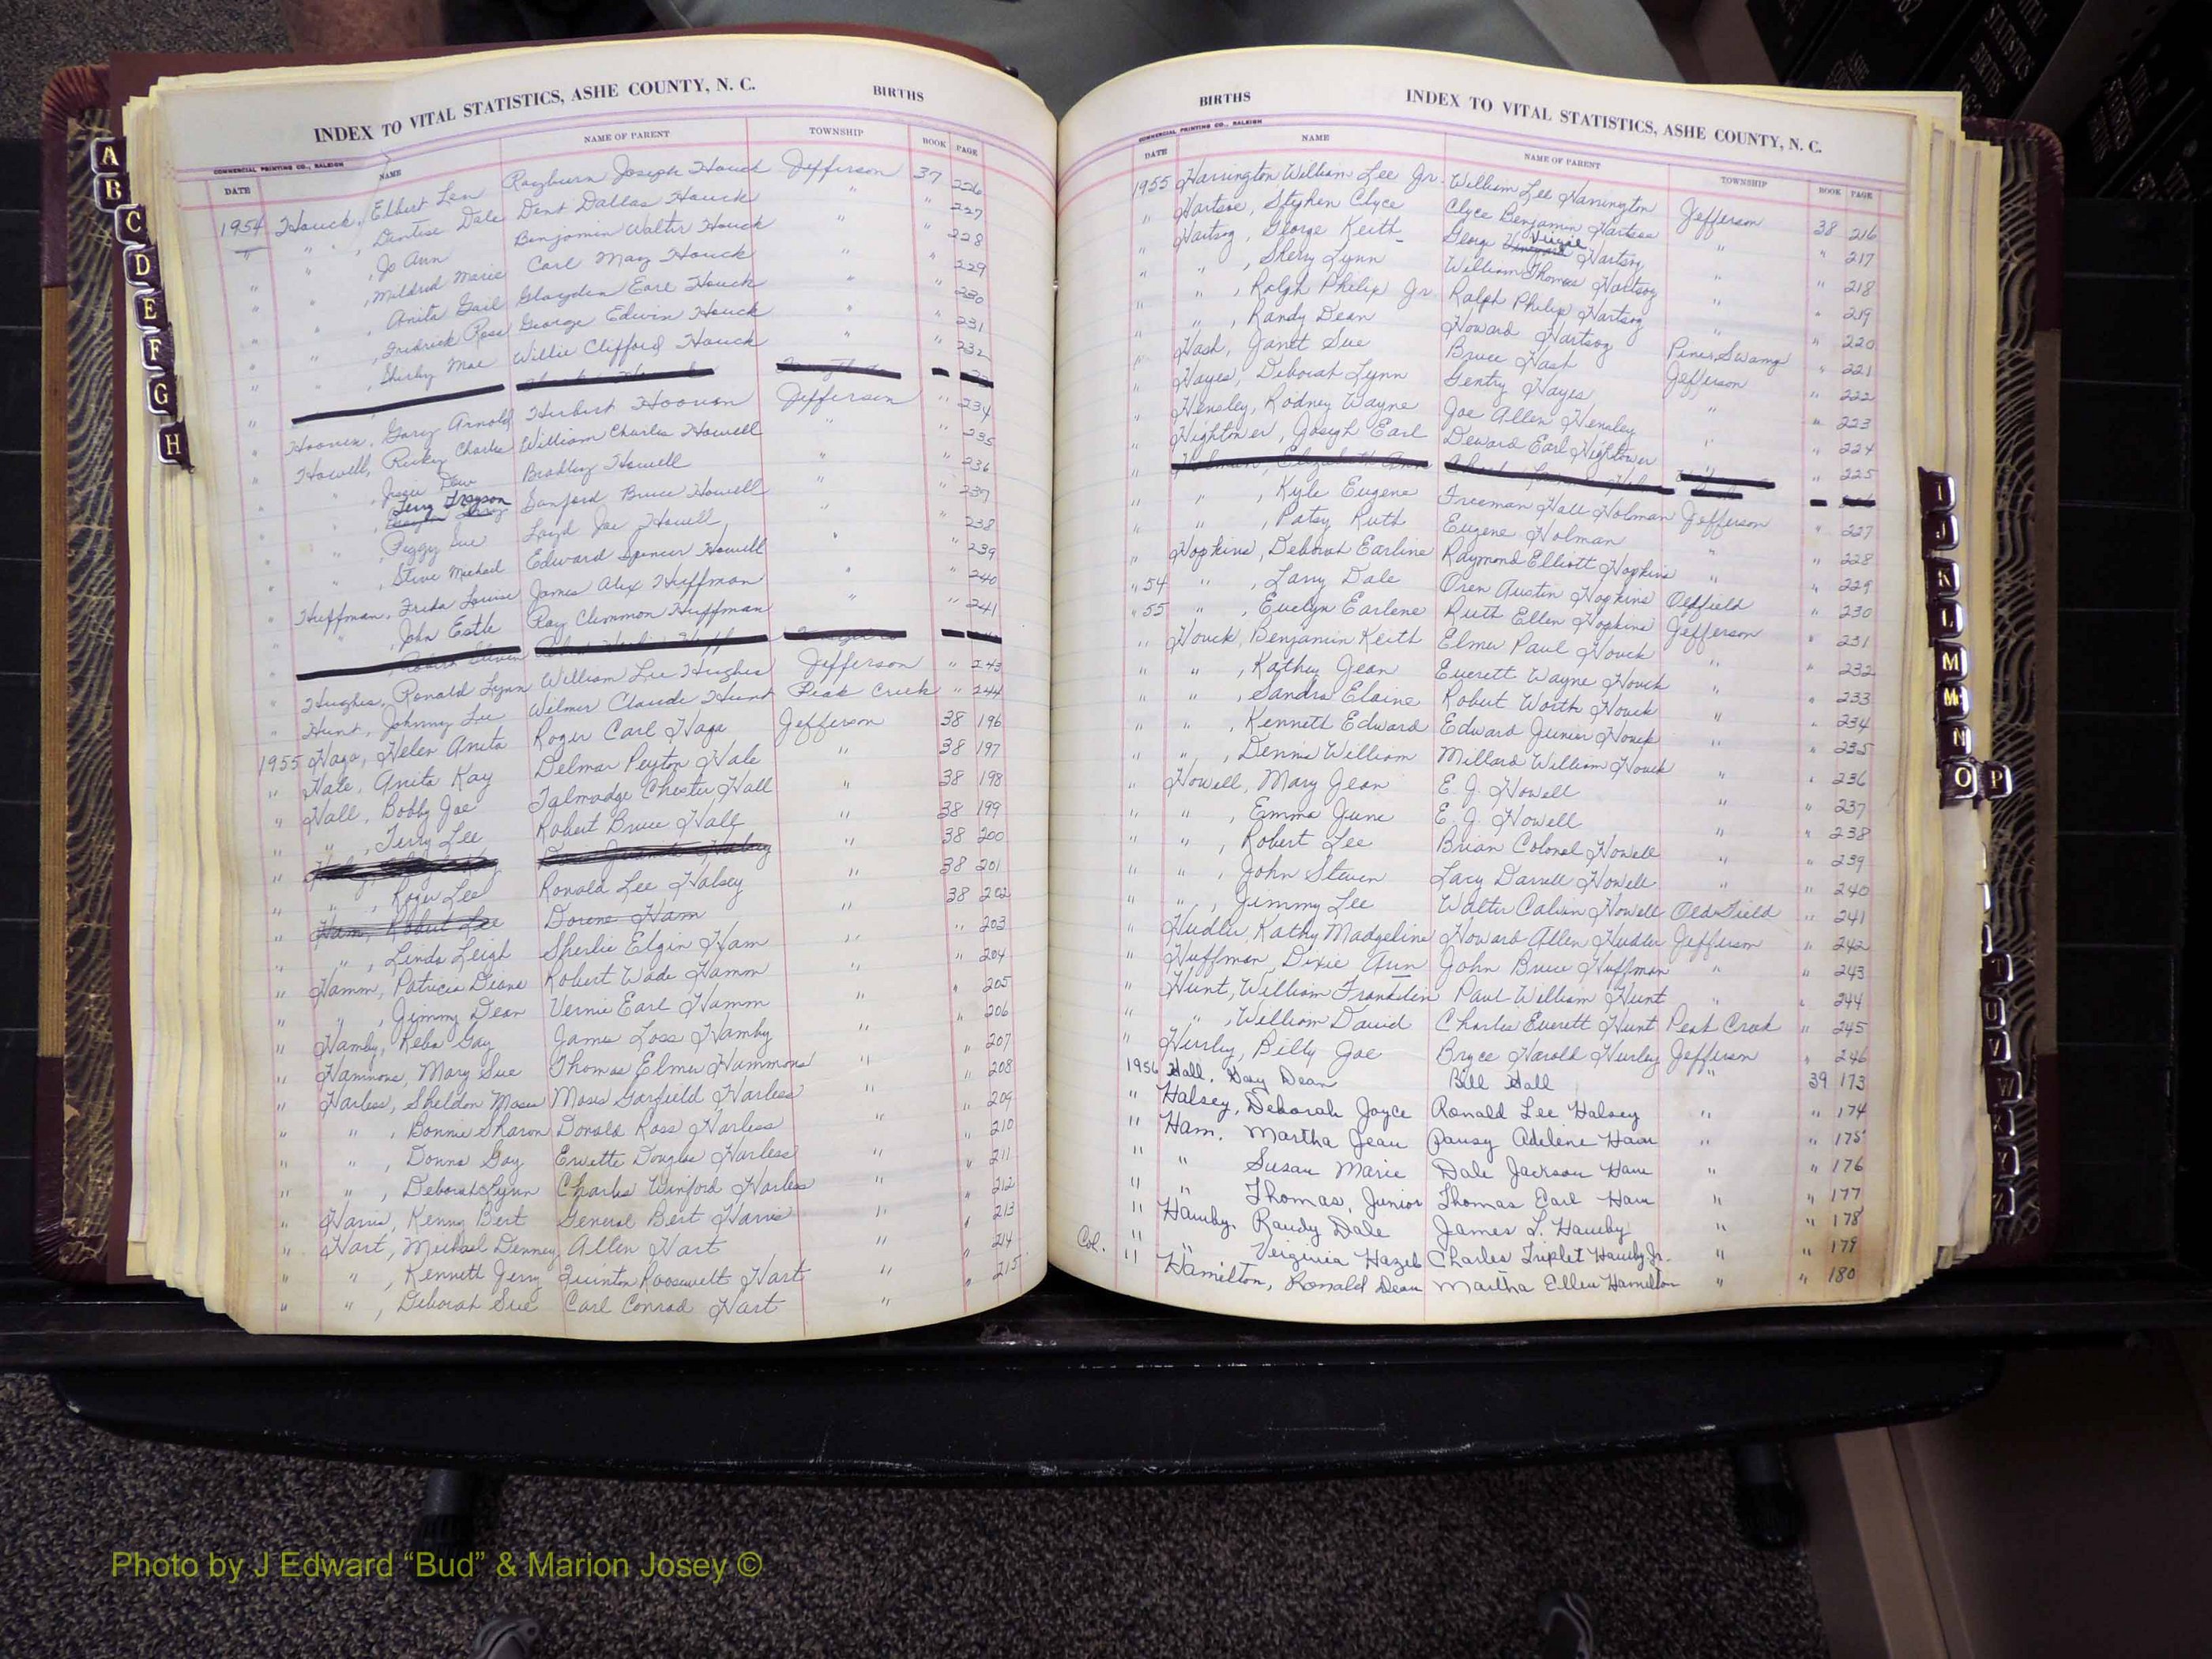 INDEX TO VITAL STATISTICS, ASHE COUNTY, N. C. BIRTHS
COMMERCIAL PRINTING CO., RALEIGH
DATE NAME NAME OF PARENT TOWNSHIP BOOK PAGE
1954 Houck, Elbert Len Rayburn Joseph Houck Jefferson 37 226
" " , Dentise Dale Dent Dallas Houck " " 227
" , Jo Ann Benjamin Walter Houck " " 228
" " , Mildred Marie Carl May Houck " " 229
" " , Anita Gail Glayden Earl Houck " " 230
" " , Fredrick Ross George Edwin Houck " " 231
" " , Shirley Mae Willie Clifford Houck " " 232
" Hooven, Gary Arnold Herbert Hooven Jefferson " 234
" Howell, Ricky Charles William Charles Howell " " 235
" , Jessie Dew Bradley Howell " " 236
" , Terry Grayson Sanford Bruce Howell " 237
" , Peggy Sue Loyd Joe Howell " 238
" " , Steve Michael Edward Spencer Howell " " 239
" Huffman, Freda Louise James Alex Huffman " 240
" " , John Estle Ray Clemmon Huffman " " 241
" , Robert Steven
" Hughes, Ronald Lynn William Lee Hughes Jefferson " 243
" Hunt, Johnny Lee Wilmer Claude Hunt Peak Creek " 244
1955 Haga, Helen Anita Roger Carl Haga Jefferson 38 196
" Hale, Anita Kay Delmar Peyton Hale " 38 197
" Hall, Bobby Joe Talmadge Chester Hall " 38 198
" " , Terry Lee Robert Bruce Hall " 38 199
" " 38 200
" " , Roger Lee Ronald Lee Halsey " 38 201
" Ham, Robert Lee Dorene Ham " 38 202
" " , Linda Leigh Sherlie Elgin Ham " " 203
" Hamm, Patricia Diane Robert Wade Hamm " " 204
" " , Jimmy Dean Vernie Earl Hamm " 205
" Hamby, Reba Gay James Loss Hamby " " 206
" Hammons, Mary Sue Thomas Elmer Hammons " " 207
" Harless, Sheldon Moses Moses Garfield Harless " " 208
" " , Bonnie Sharon Donald Ross Harless " " 209
" " , Donna Gay Ervette Douglas Harless " " 210
" " , Deborah Lynn Charles Winford Harless " " 211
" Harris, Kenny Bert General Bert Harris " " 212
" Hart, Michael Denney Allen Hart " " 213
" " , Kenneth Jerry Quinton Roosevelt Hart " " 214
" " , Deborah Sue Carl Conrad Hart " " 215
BIRTHS INDEX TO VITAL STATISTICS, ASHE COUNTY, N. C.
COMMERCIAL PRINTING CO., RALEIGH
DATE NAME NAME OF PARENT TOWNSHIP BOOK PAGE
1955 Harrington William Lee Jr. William Lee Harrington Jefferson 38 216
" Hartsoe, Stephen Clyce Clyce Benjamin Hartsoe " " 217
" Hartsog, George Keith George Virgil Hartsog " " 218
" " , Sherry Lynn William Thomas Hartsog " " 219
" " , Ralph Philip Jr. Ralph Philip Hartsog " " 220
" " , Randy Dean Howard Hartsog Piney Swamp " 221
" Hash, Janet Sue Bruce Hash Jefferson " 222
" Hayes, Deborah Lynn Gentry Hayes " " 223
" Hensley, Rodney Wayne Joe Allen Hensley " " 224
" Hightower, Joseph Earl Deward Earl Hightower " 225
" Holman, Elizabeth Ann
" " , Kyle Eugene Freeman Hall Holman Jefferson " 227
" " , Patsy Ruth Eugene Holman " " 228
" Hopkins, Deborah Earline Raymond Elliott Hopkins " " 229
" 54 " , Larry Dale Oren Austin Hopkins Oldfield " 230
" 55 " , Evelyn Earlene Ruth Ellen Hopkins Jefferson " 231
" Houck, Benjamin Keith Elmer Paul Houck " " 232
" " , Kathey Jean Everett Wayne Houck " " 233
" " , Sandra Elaine Robert Worth Houck " " 234
" " , Kenneth Edward Edward Junior Houck " " 235
" " , Dennis William Millard William Houck " " 236
" Howell, Mary Jean E. J. Howell " " 237
" " , Emma June E. J. Howell " " 238
" " , Robert Lee Brian Colonel Howell " " 239
" " , John Steven Lacy Darrell Howell " " 240
" " , Jimmy Lee Walter Calvin Howell Old Field " 241
" Hudler, Kathy Madgeline Howard Allen Hudler Jefferson " 242
" Huffman, Dixie Ann John Bruce Huffman " " 243
" Hunt, William Franklin Paul William Hunt " " 244
" " , William David Charles Everett Hunt Peak Creek " 245
" Hurley, Billy Joe Bryce Harold Hurley Jefferson " 246
1956 Hall, Gay Dean Bill Hall " 39 173
" Halsey, Deborah Joyce Ronald Lee Halsey " " 174
" Ham, Martha Jean Pansy Adelene Ham " " 175
" " Susan Marie Dale Jackson Ham " " 176
" " Thomas, Junior Thomas Earl Ham " " 177
" Hamby, Randy Dale James L. Hamby " " 178
Col. " " Virginia Hazel Charles Triplet Hamby Jr. " " 179
Hamilton, Ronald Dean Martha Ellen Hamilton " " 180
A
B
C
D
E
F
G
H
I
J
K
L
M
M
N
O P
T
U
V
W
X
Y
Z
VITAL STATISTICS BIRTHS
Photo by J Edward “Bud” & Marion Josey ©